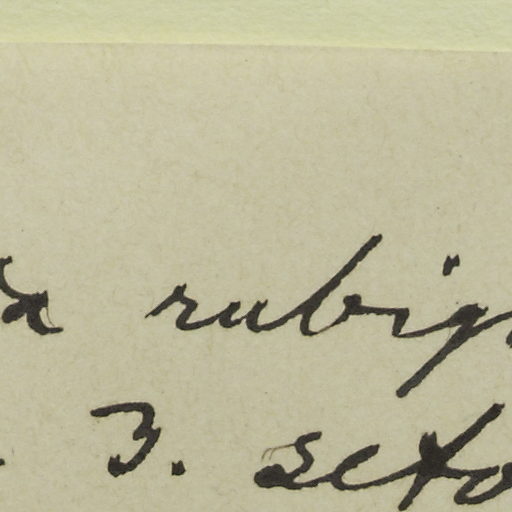 a rubig
3. seto